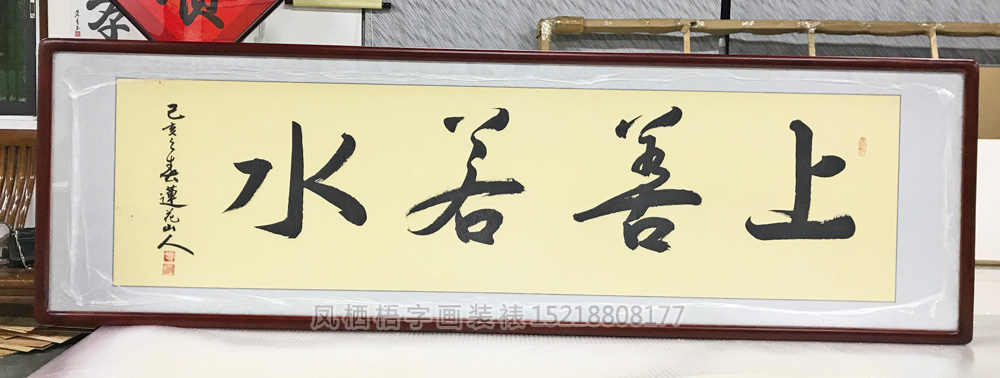 上善若水
己亥之春蓮花山人
凤栖梧字画装裱15218808177